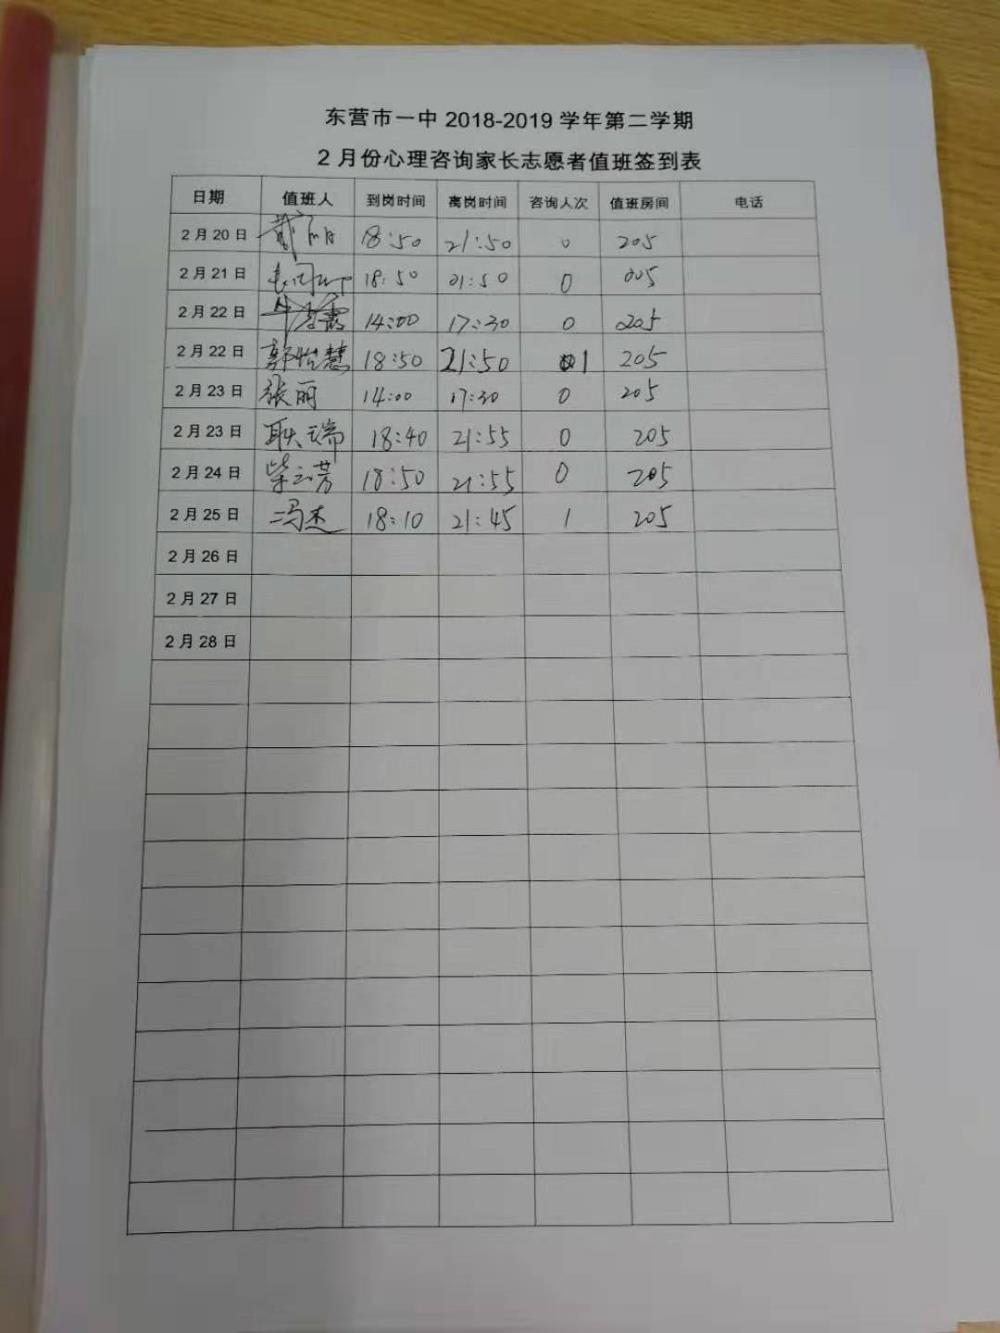 东营市一中2018-2019学年第二学期
2月份心理咨询家长志愿者值班签到表
日期 值班人 到岗时间 离岗时间 咨询人次 值班房间 电话
2月20日 18:50 21:50 0 205
2月21日 18:50 21:50 0 205
2月22日 14:00 17:30 0 205
2月22日 郭怡慧 18:50 21:50 1 205
2月23日 张丽 14:00 17:30 0 205
2月23日 耿云瑞 18:40 21:55 0 205
2月24日 柴云芳 18:50 21:55 0 205
2月25日 冯杰 18:10 21:45 1 205
2月26日
2月27日
2月28日